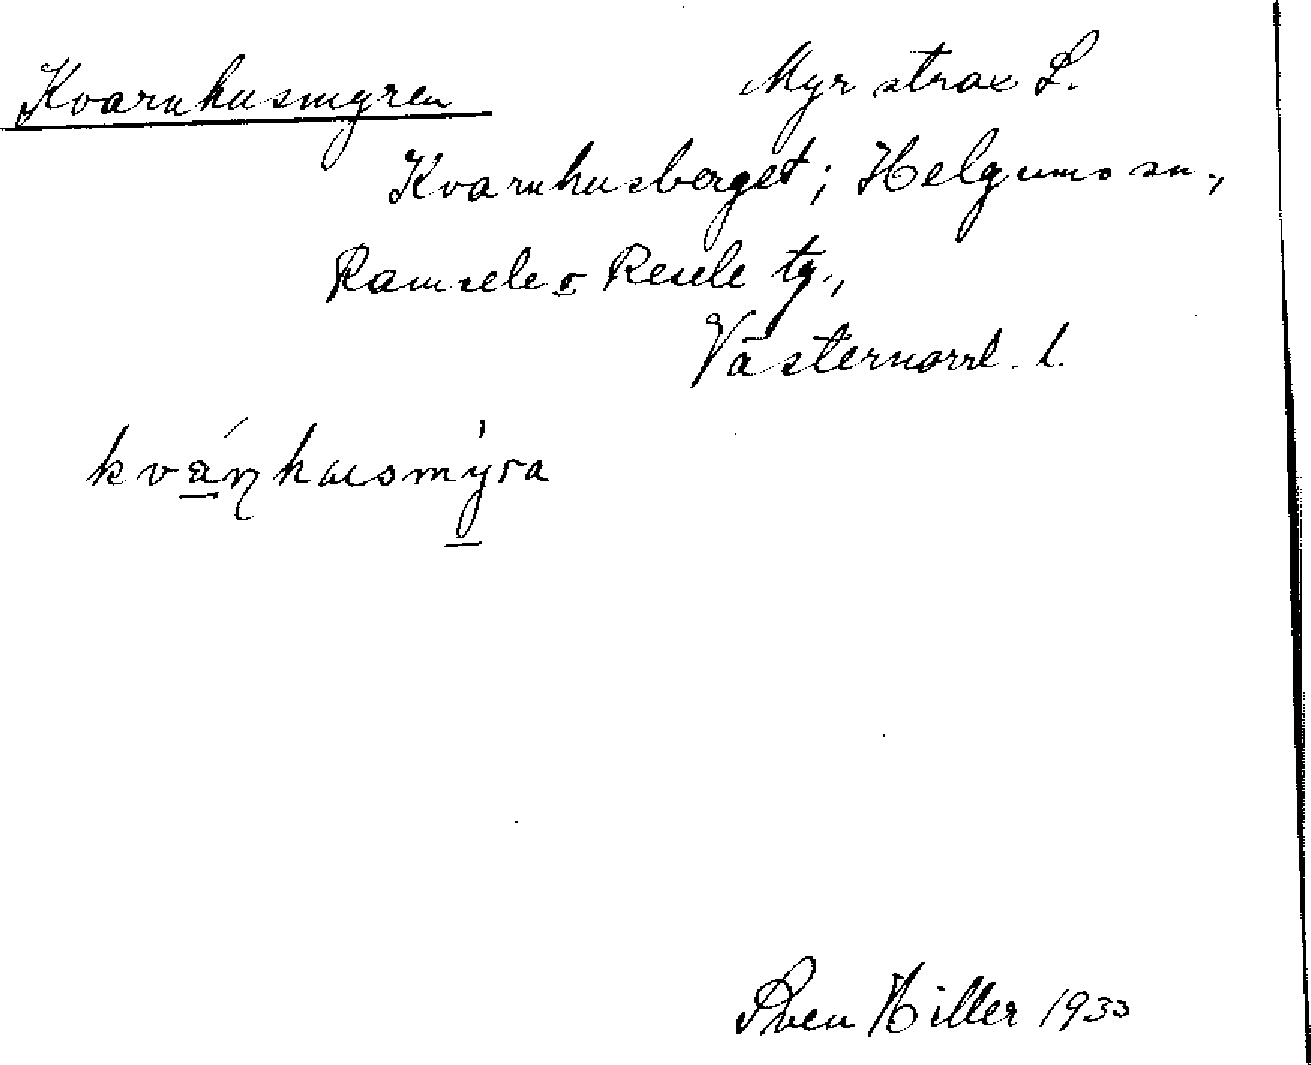 Kvarnhusmyren Myr strax S.
Kvarnhusberget; Helgums sn.,
Ramsele o Resele tg.,
Västernorrl. l.
kvá̱ɳhusmỳ̱ra
Sven Hiller 1933